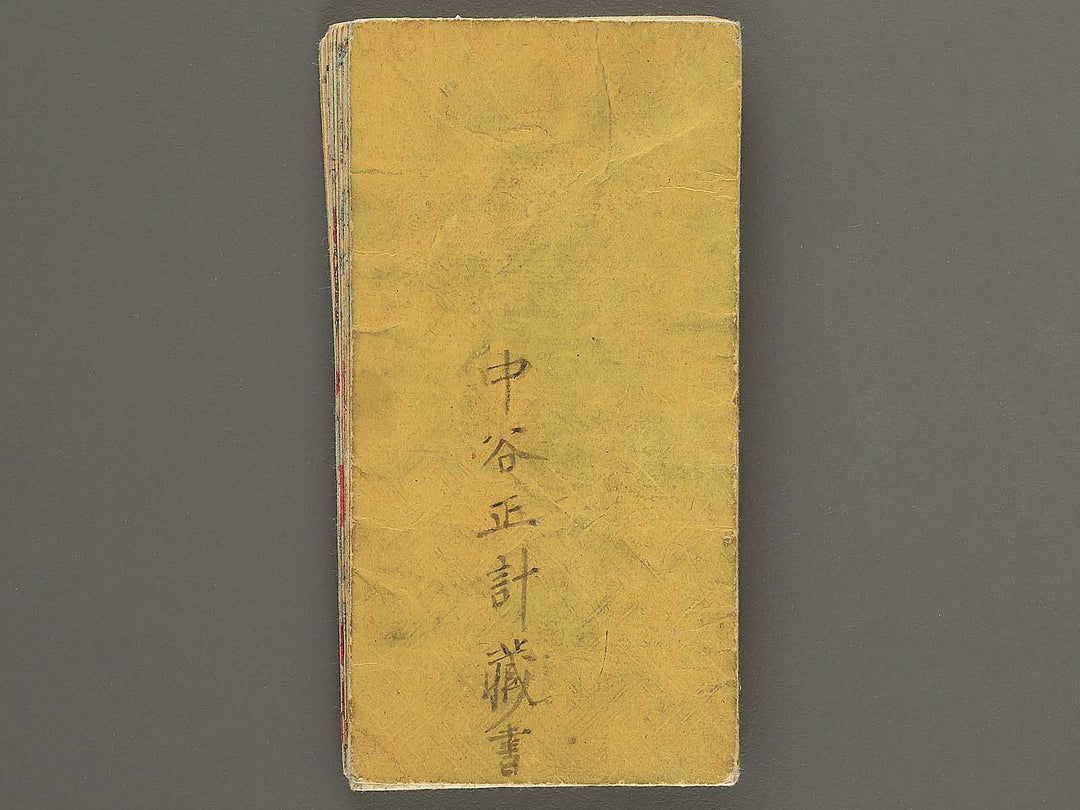 中谷正計蔵書